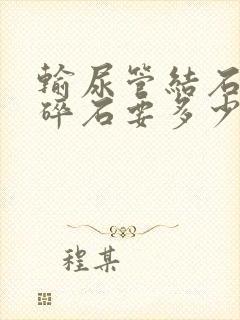 輸尿管結石
碎石要多少
程某